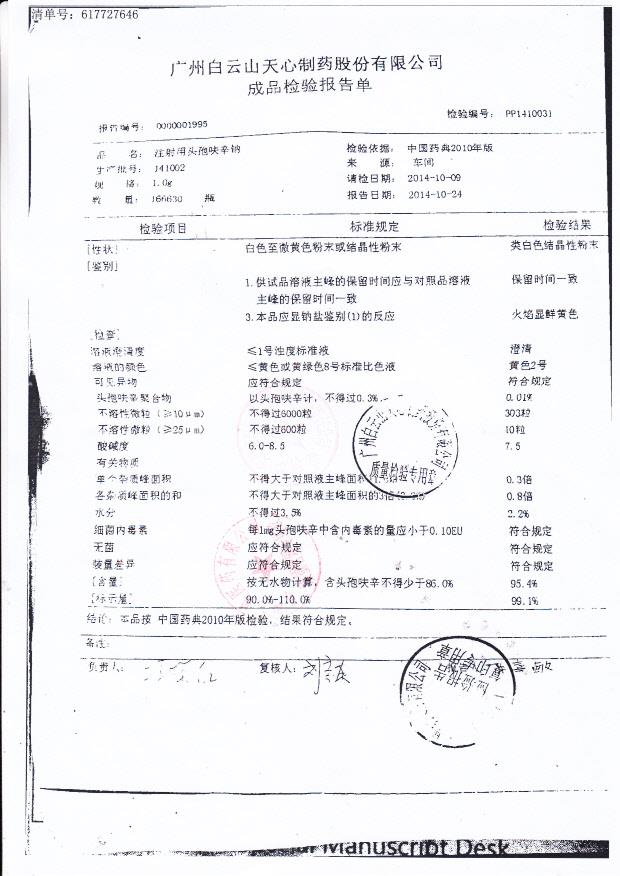 清单号：617727646
广州白云山天心制药股份有限公司
成品检验报告单
检验编号： PP1410031
报告编号： 0000001995
品 名： 注射用头孢呋辛钠 检验依据： 中国药典2010年版
生产批号： 141002 来 源： 车间
规 格： 1.0g 请检日期： 2014-10-09
数 量： 166630 瓶 报告日期： 2014-10-24
检验项目 标准规定 检验结果
[性状] 白色至微黄色粉末或结晶性粉末 类白色结晶性粉末
[鉴别]
1.供试品溶液主峰的保留时间应与对照品溶液 保留时间一致
主峰的保留时间一致
3.本品应显钠盐鉴别(1)的反应 火焰显鲜黄色
[检查]
溶液澄清度 ≤1号浊度标准液 澄清
溶液的颜色 ≤黄色或黄绿色8号标准比色液 黄色2号
可见异物 应符合规定 符合规定
头孢呋辛聚合物 以头孢呋辛计，不得过0.3% 0.01%
不溶性微粒（≥10μm） 不得过6000粒 303粒
不溶性微粒（≥25μm） 不得过600粒 10粒
酸碱度 6.0-8.5 7.5
有关物质
单个杂质峰面积 不得大于对照液主峰面积 0.3倍
各杂质峰面积的和 不得大于对照液主峰面积的3倍 0.8倍
水分 不得过3.5% 2.2%
细菌内毒素 每1mg头孢呋辛中含内毒素的量应小于0.10EU 符合规定
无菌 应符合规定 符合规定
装量差异 应符合规定 符合规定
[含量] 按无水物计算，含头孢呋辛不得少于86.0% 95.4%
[标示量] 90.0%-110.0% 99.1%
结论：本品按 中国药典2010年版检验，结果符合规定。
备注：
负责人： 复核人：
广州白云山天心制药股份有限公司
质量检验专用章
有限公司
检验报告
复印专用章
Manuscript Desk